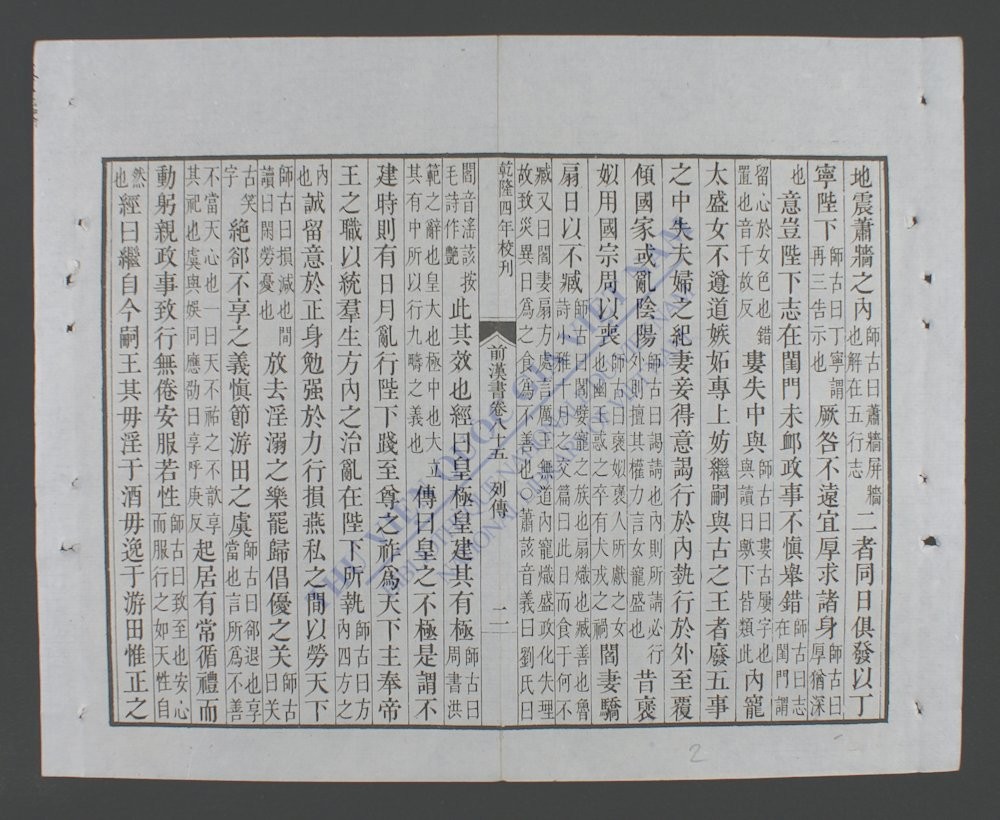 地震蕭牆之內師古曰蕭牆屏牆也解在五行志二者同日俱發以丁
寧陛下師古曰丁寧謂再三告示也厥咎不遠宜厚求諸身師古曰厚猶深
也意豈陛下志在閨門未卹政事不慎舉錯師古曰志在閨門謂
留心於女色也錯置也音千故反婁失中與師古曰婁古屢字也與讀曰歟下皆類此內寵
太盛女不遵道嫉妬專上妨繼嗣與古之王者廢五事
之中失夫婦之紀妻妾得意謁行於內埶行於外至覆
傾國家或亂陰陽師古曰謁請也內則所請必行外則擅其權力言女寵盛也昔褒
姒用國宗周以喪師古曰褒姒褒人所獻之女也幽王惑之卒有犬戎之禍閻妻驕
扇日以不臧師古曰閻嬖寵之族也扇熾也臧善也魯詩小雅十月之交篇曰此日而食于何不
臧又曰閻妻扇方處言厲王無道內寵熾盛政化失理故致災異日為之食為不善也蕭該音義曰劉氏曰
乾隆四年校刊
前漢書卷八十五 列傳
二
閻音滛該按毛詩作艷此其效也經曰皇極皇建其有極師古曰周書洪
範之辭也皇大也極中也大立其有中所以行九疇之義也傳曰皇之不極是謂不
建時則有日月亂行陛下踐至尊之祚為天下主奉帝
王之職以統羣生方內之治亂在陛下所執師古曰方內四方之
內也誠留意於正身勉强於力行損燕私之閒以勞天下
師古曰損減也閒讀曰閑勞憂也放去淫溺之樂罷歸倡優之关師古曰关
古笑字絕郤不享之義慎節游田之虞師古曰郤退也享當也言所為不善
不當天心也一曰天不祐之不歆享其祀也虞與娛同應劭曰享呼庚反起居有常循禮而
動躬親政事致行無倦安服若性師古曰致至也安心而服行之如天性自
然也經曰繼自今嗣王其毋淫于酒毋逸于游田惟正之
THƯ VIỆN QUỐC GIA VIỆT NAM
BIBLIOTHEQUE NATIONALE DU VIETNAM
NATIONAL LIBRARY OF VIETNAM
2